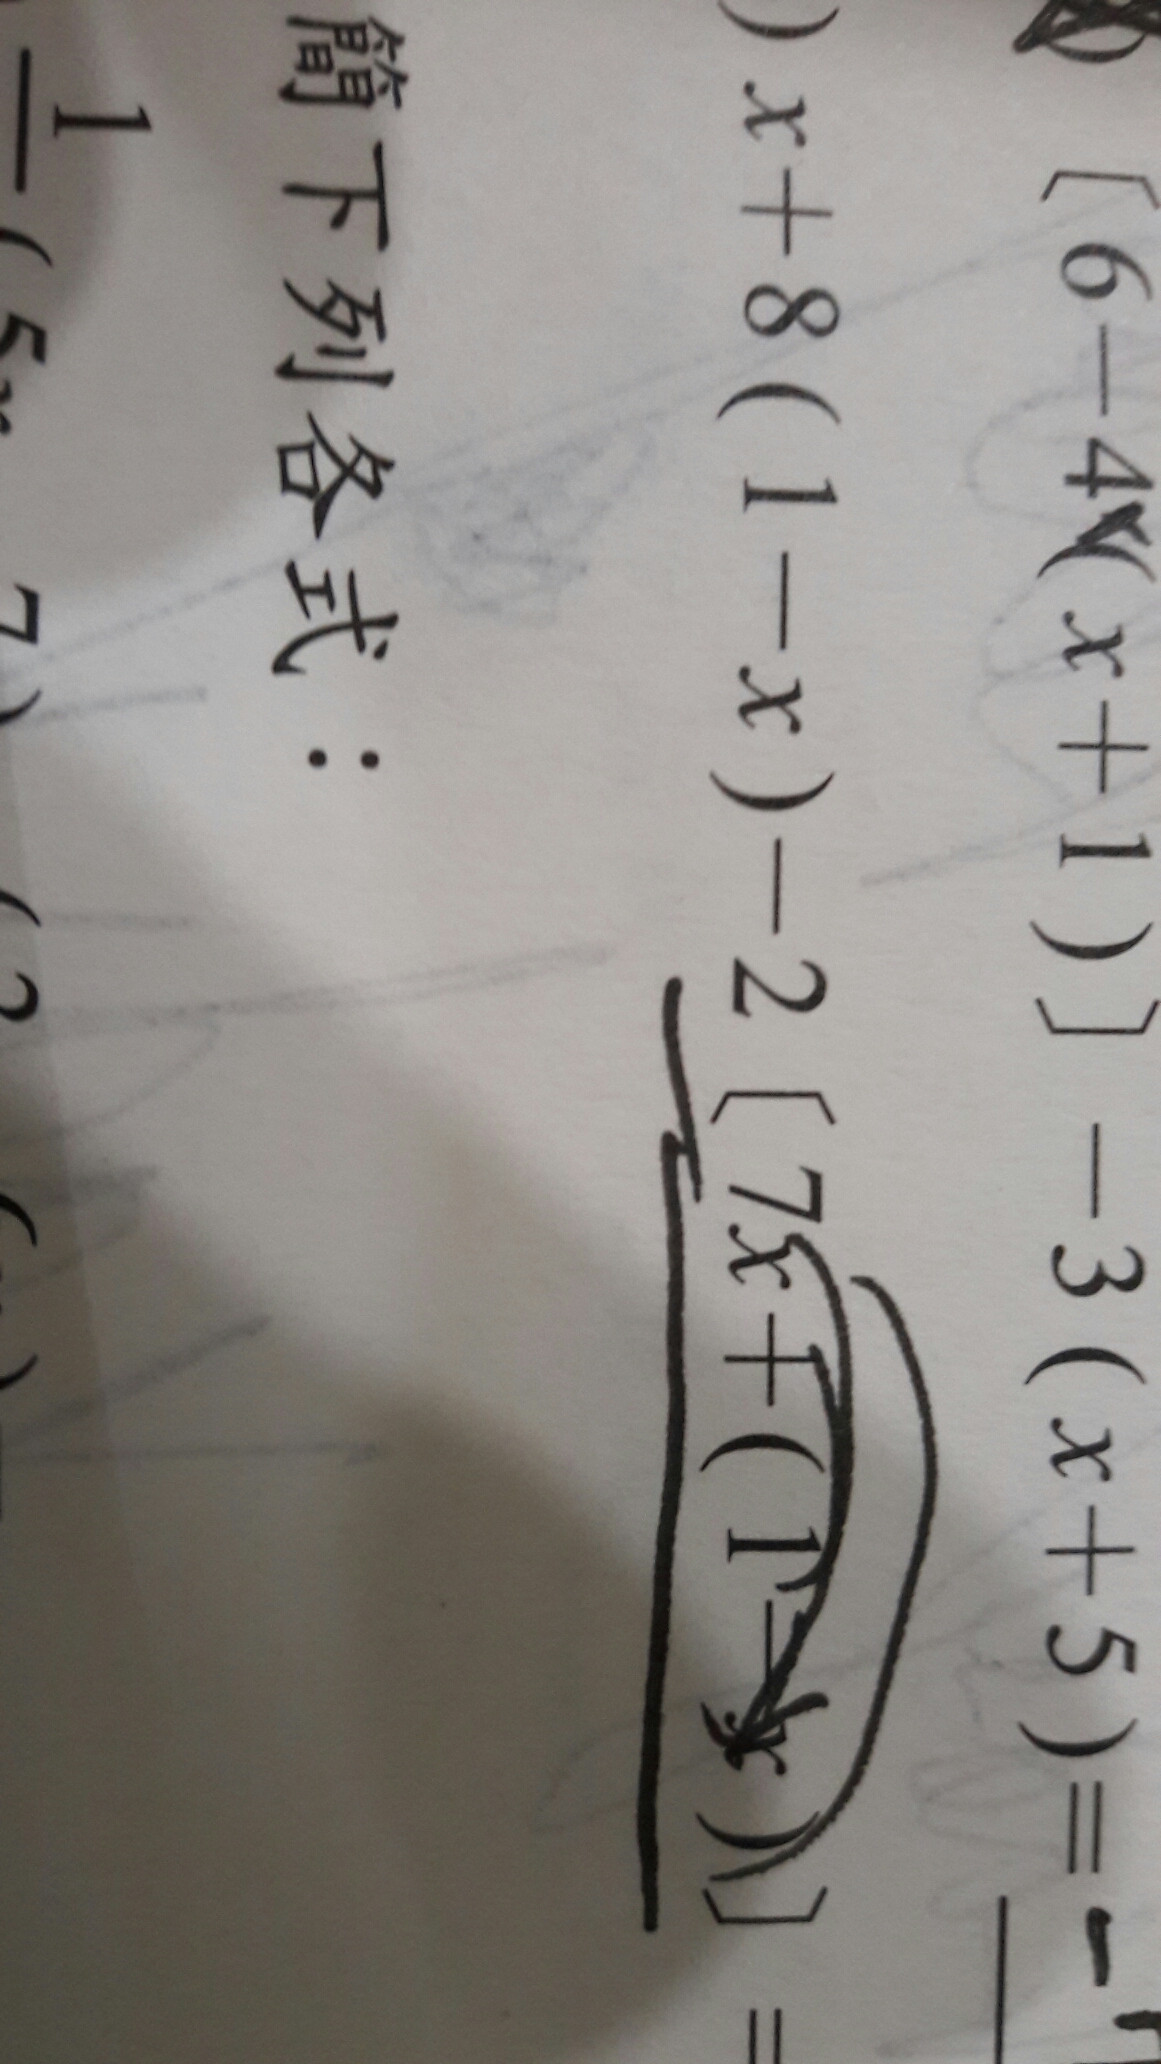 〔6－4(x＋1)〕－3(x＋5)＝－
)x＋8(1－x)－2〔7x＋(1－x)〕＝
簡下列各式：
1
(5x 7)